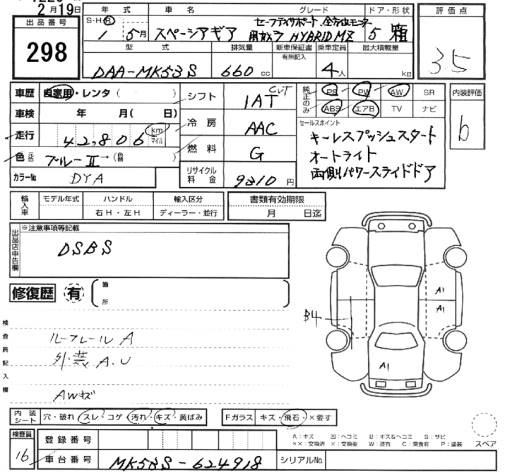 2月19日
年式 車名 グレード ドア・形状 評価点
出品番号 298
S・H・R 1 5月 スペーシアギア セーフティサポート、全方位モニター HYBRID MZ 5 箱
35
型式 排気量 新車保証書 有無記入 乗車定員 最大積載量
DAA-MK53S 660 cc 4人 kg
車歴 自家用・レンタ( )
車検 年 月( 日)
走行 42,806 km マイル
色 ブルーⅡ
カラーNo. DYA
シフト 1AT CVT
冷房 AAC
燃料 G
リサイクル料金 9210円
純正のみ PS PW AW SR
ABS エアB TV ナビ
内装評価 b
セールスポイント
キーレスプッシュスタート
オートライト
両側パワースライドドア
輸入車 モデル年式 ハンドル 輸入区分 書類有効期限
右H・左H ディーラー・並行 月 日迄
出品店申告欄 ※注意事項等記載
DSBS
修復歴 有 箇所
検査員記入欄
ルーフレールA
外装A.U
AWキズ
B4
A1
A1
A1
内装シート 穴・破れ スレ コゲ 汚れ・キズ・黄ばみ Fガラス キズ・飛石・×要す
スペア
検査員 16
登録番号
車台番号 MK53S-624918 シリアルNo.